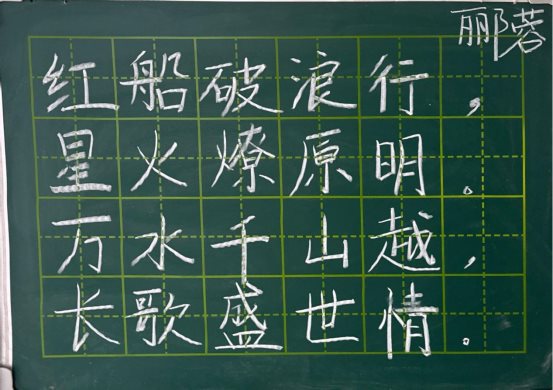 郦蓉
红船破浪行，
星火燎原明。
万水千山越，
长歌盛世情。